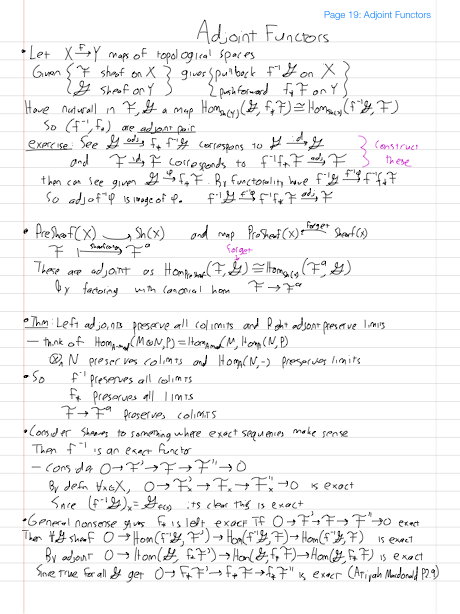 Page 19: Adjoint Functors
Adjoint Functors
• Let X →f Y maps of topological spaces
Given { ℱ sheaf on X } gives { pullback f⁻¹𝒢 on X }
{ 𝒢 sheaf on Y } { pushforward f₊ℱ on Y }
Have natural in ℱ, 𝒢 a map Hom_Sh(Y)(𝒢, f₊ℱ) ≅ Hom_Sh(X)(f⁻¹𝒢, ℱ)
So (f⁻¹, f₊) are adjoint pair
exercise: See 𝒢 →adj f₊f⁻¹𝒢 corresponds to 𝒢 →id 𝒢 } Construct
and ℱ →id ℱ corresponds to f⁻¹f₊ℱ →adj ℱ } these
then can see given 𝒢 →φ f₊ℱ. By functoriality have f⁻¹𝒢 →f⁻¹φ f⁻¹f₊ℱ
So adj∘f⁻¹φ is image of φ. f⁻¹𝒢 →f⁻¹φ f⁻¹f₊ℱ →adj ℱ
• PreSheaf(X) → Sh(X) and map PreSheaf(X) ←forget Sheaf(X)
ℱ |→sheafification ℱᵃ
forget
These are adjoint as Hom_PreSheaf(ℱ, 𝒢) ≅ Hom_Sh(X)(ℱᵃ, 𝒢)
by factoring with canonical hom ℱ → ℱᵃ
• Thm: Left adjoints preserve all colimits and Right adjoint preserve limits
– think of Hom_A-mod(M⊗N,P) = Hom_A-mod(M, Hom_A(N,P))
⊗_A N preserves colimits and Hom_A(N,-) preserves limits
• So f⁻¹ preserves all colimits
f₊ preserves all limits
ℱ → ℱᵃ preserves colimits
• Consider sheaves to something where exact sequences make sense
Then f⁻¹ is an exact functor
– consider 0→ℱ'→ℱ→ℱ''→0
By defn ∀x∈X, 0→ℱ'ₓ→ℱₓ→ℱ''ₓ→0 is exact
Since (f⁻¹𝒢)ₓ = 𝒢_f(x) its clear this is exact
• General nonsense gives f₊ is left exact If 0→ℱ'→ℱ→ℱ''→0 exact
Then ∀𝒢 sheaf 0→Hom(f⁻¹𝒢,ℱ')→Hom(f⁻¹𝒢,ℱ)→Hom(f⁻¹𝒢,ℱ'') is exact
By adjoint 0→Hom(𝒢,f₊ℱ')→Hom(𝒢,f₊ℱ)→Hom(𝒢,f₊ℱ'') is exact
Since true for all 𝒢 get 0→f₊ℱ'→f₊ℱ→f₊ℱ'' is exact (Atiyah Macdonald P2.9)